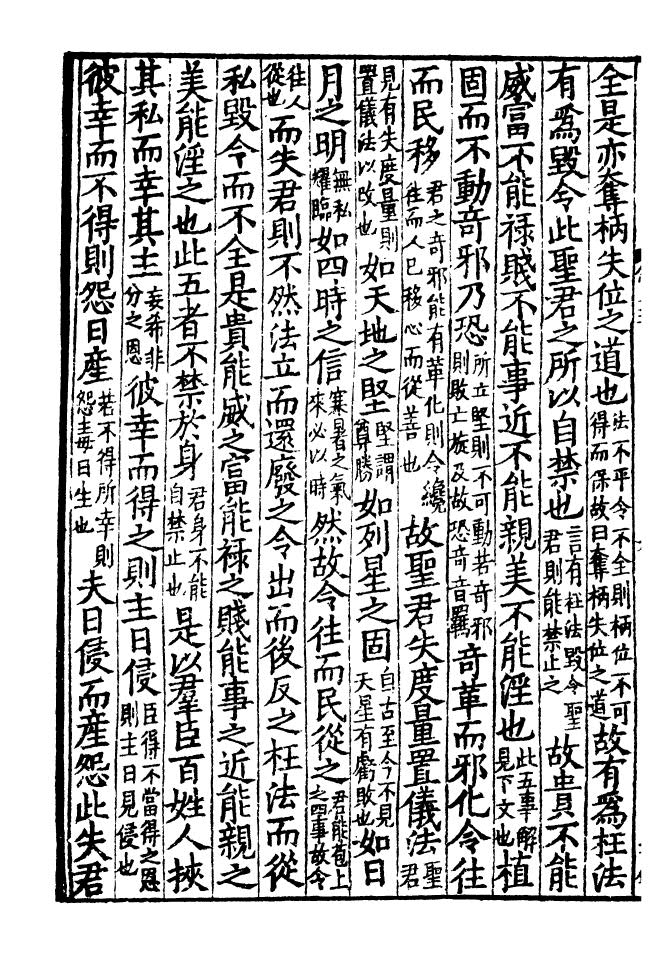 全是亦奪柄失位之道也法不平令不全則柄位不可得而保故曰奪柄失位之道故有爲枉法
有爲毀令此聖君之所以自禁也言有枉法毀令聖君則能禁止之故貴不能
威富不能祿賤不能事近不能親美不能淫也此五事解見下文也植
固而不動奇邪乃恐所立堅則不可動若奇邪則敗亡旋及故恐奇音羈奇革而邪化令往
而民移君之奇邪能有革化則令纔往而人已移心而從善也故聖君失度量置儀法聖君
見有失度量則置儀法以改也如天地之堅堅謂尊勝如列星之固自古至今不見天星有虧敗也如日
月之明無私耀臨如四時之信寒暑之氣來必以時然故令往而民從之君能苞上之四事故令
往人從也而失君則不然法立而還廢之令出而後反之枉法而從
私毀令而不全是貴能威之富能祿之賤能事之近能親之
美能淫之也此五者不禁於身君身不能自禁止也是以羣臣百姓人挾
其私而幸其主妄希非分之恩彼幸而得之則主日侵臣得不當得之恩則主日見侵也
彼幸而不得則怨日産若不得所幸則怨毒日生也夫日侵而産怨此失君